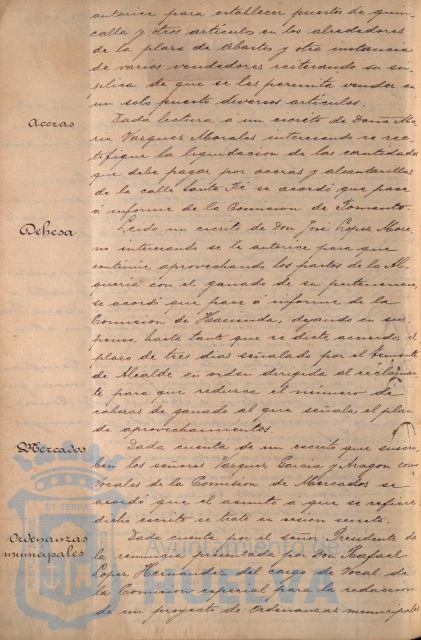 autorice para establecer puestos de quin-
calla y otros artículos en los alrededores
de la plaza de Abastos y otra instancia
de varios vendedores reiterando su sú-
plica de que se les permita vender en
un solo puesto diversos artículos.
Aceras
Dada lectura a un escrito de Doña Ma-
ría Vazquez Morales interesando se rec-
tifique la liquidacion de las cantidades
que debe pagar por aceras y alcantarillas
de la calle Santa Fé se acordó que pase
á informe de la Comision de Fomento.
Dehesa
Leido un escrito de Don José Lopez More-
no interesando se le autorice para que
continúe aprovechando los pastos de la Al-
quería con el ganado de su pertenencia,
se acordó que pase á informe de la
Comision de Hacienda, dejando en sus-
penso, hasta tanto que se dicte acuerdo, el
plazo de tres dias señalado por el Teniente
de Alcalde en orden dirigida al reclaman-
te para que reduzca el número de
cabezas de ganado al que señala el plan
de aprovechamientos.
Mercados
Dada cuenta de un escrito que suscri-
ben los señores Vazquez Garcia y Aragon como
Vocales de la Comision de Mercados se
acordó que el asunto a que se refiere
dicho escrito se trate en sesion secreta.
Ordenanzas
municipales
Dada cuenta por el señor Presidente de
la renuncia presentada por Don Rafael
Lopez Hernandez del cargo de Vocal de
la Comision especial para la redaccion
de un proyecto de Ordenanzas municipales
Ayuntamiento
HUELVA